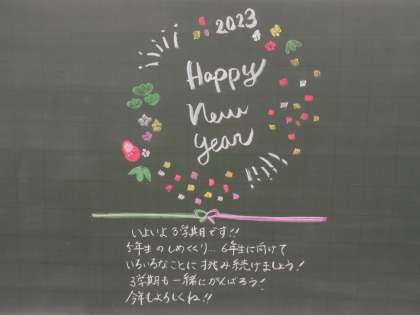 2023
Happy
New
year
いよいよ3学期です!!
5年生のしめくくり… 6年生に向けて
いろいろなことに挑み続けましょう!
3学期も一緒にがんばろう!
今年もよろしくね!!